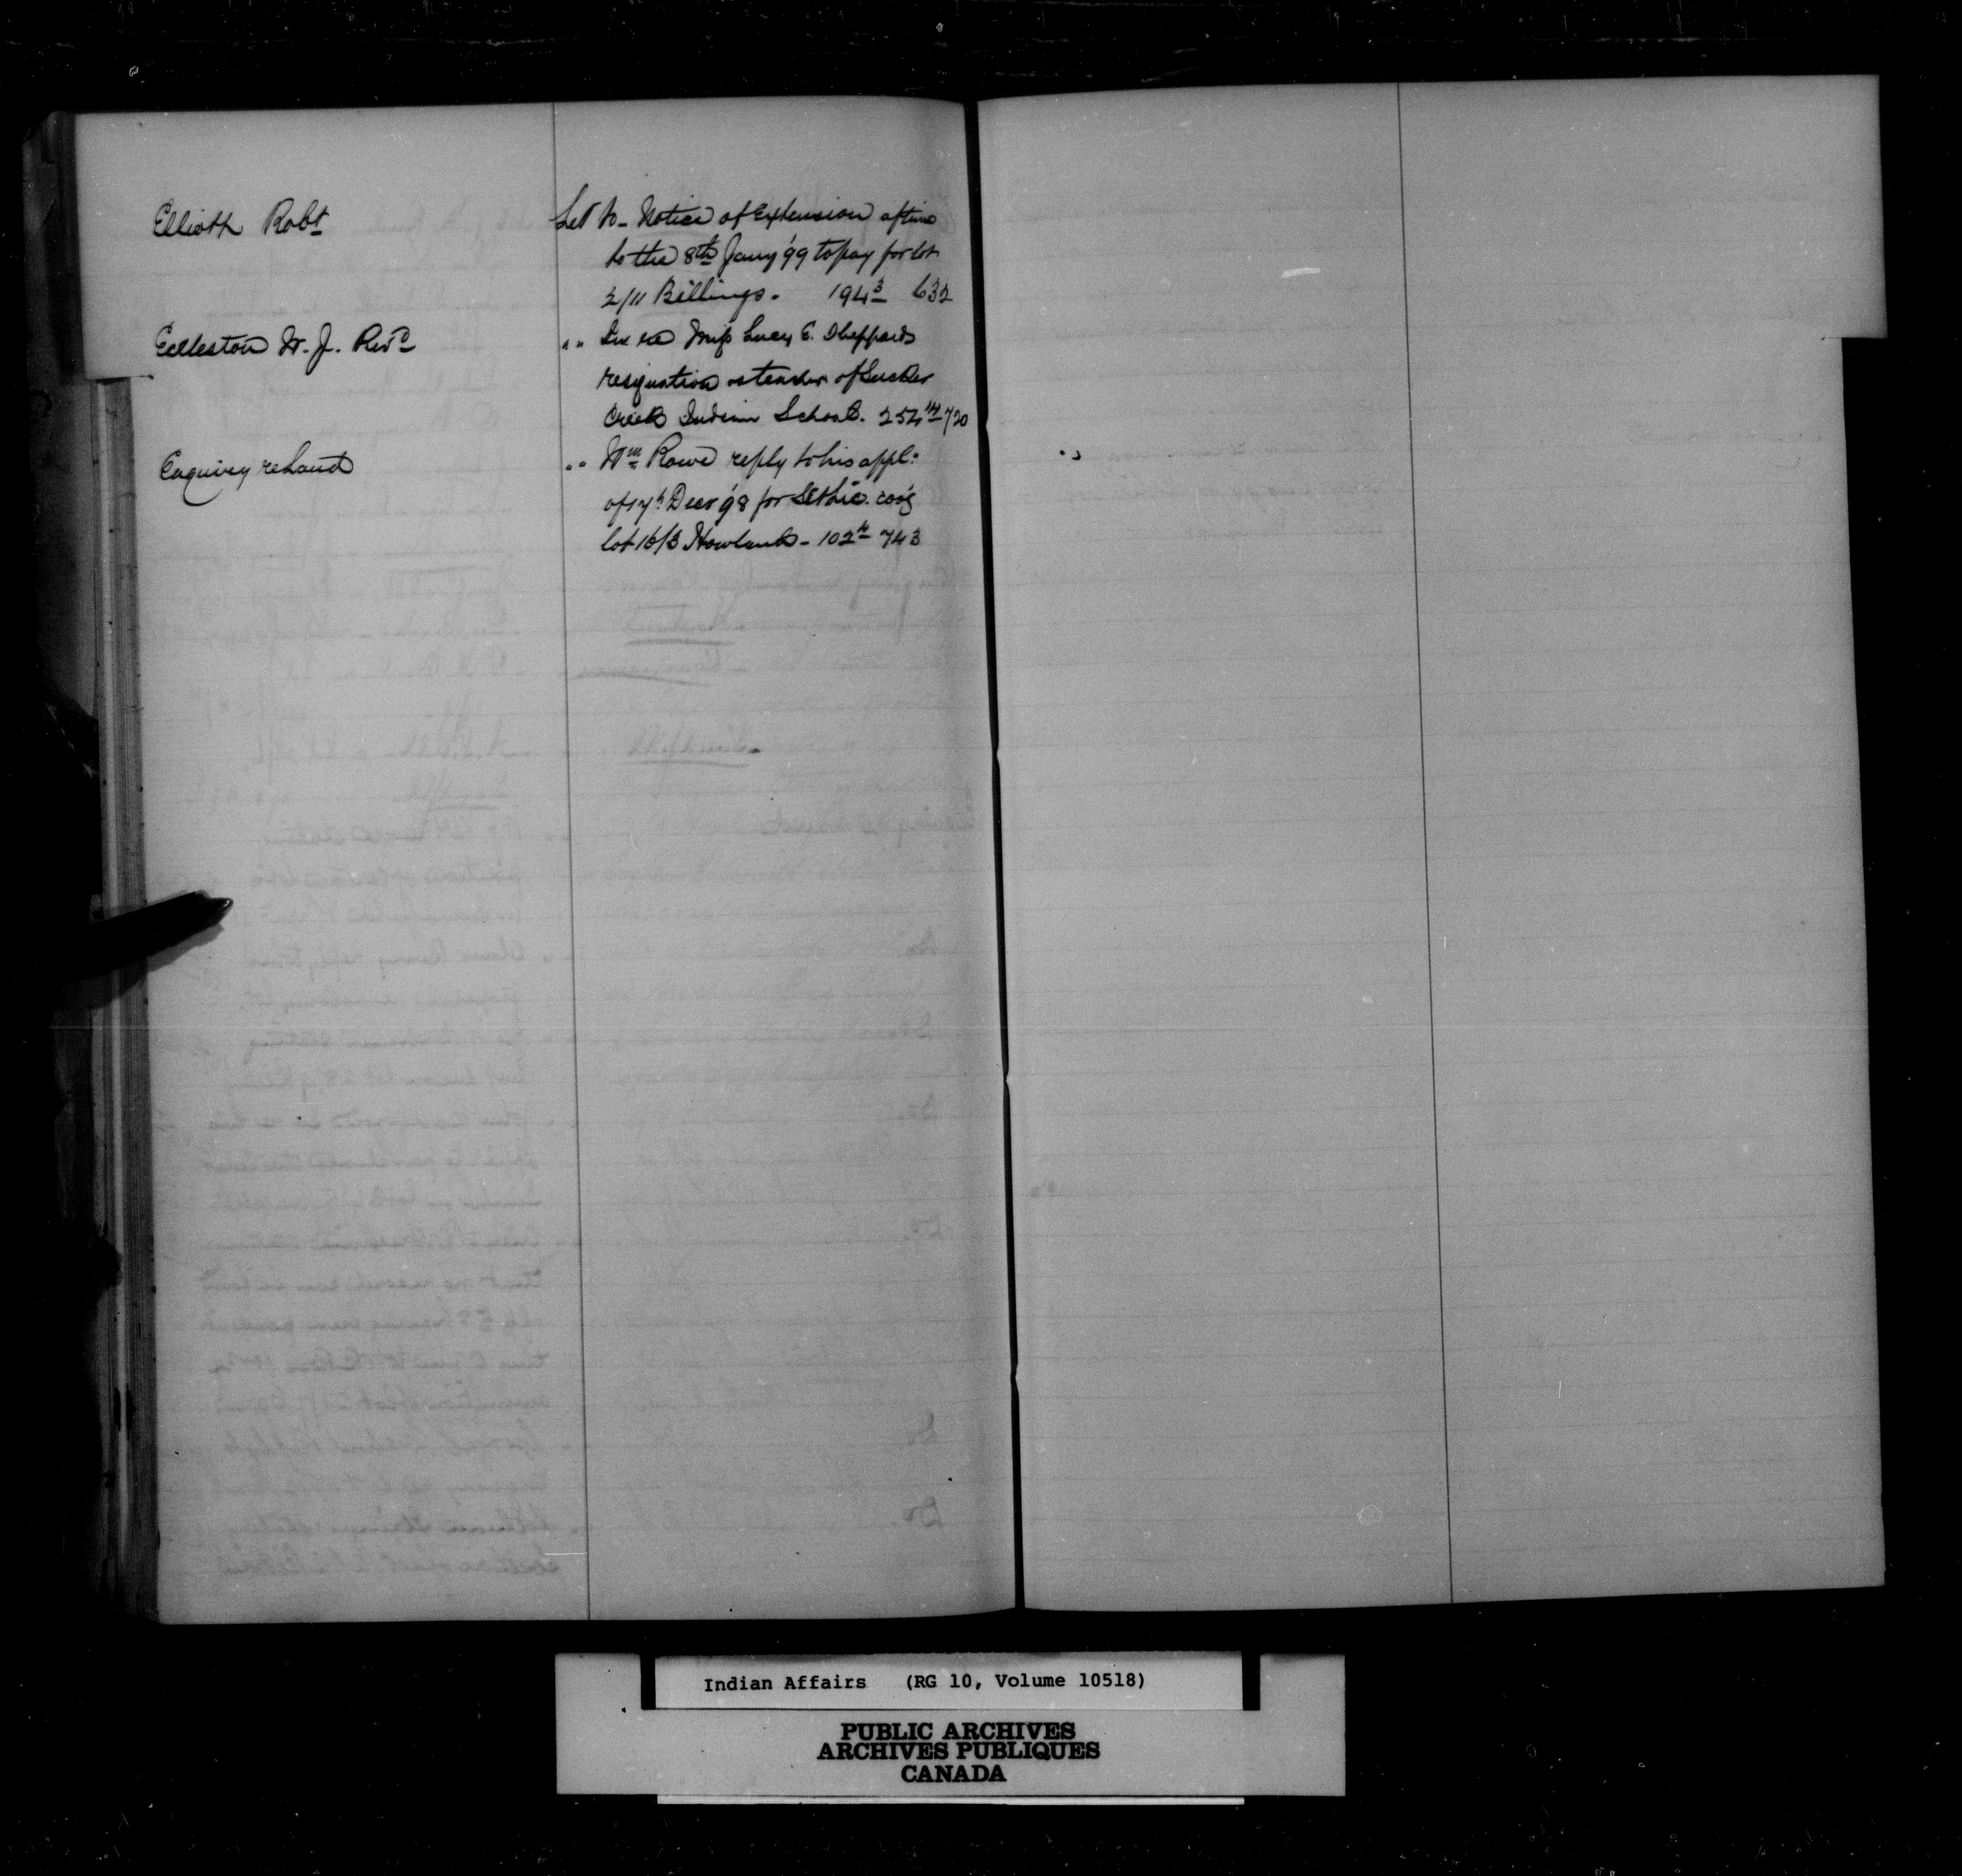 Elliott Robt
Let to - Notice of Extension of time
to the 8th Jany '99 to pay for lot
2/11 Billings. 194 3 632
Eccleston W. J. Revd
" " re Miss Lucy E. Sheppards
resignation as teacher of Sucker
Creek Indian School. 254 14 720
Enquiry re Land
" " Wm Rowe reply to his appl.
of 17th Decr 98 for Set. lic. cov'g
lot 16/3 Howland - 102 4 743
Indian Affairs (RG 10, Volume 10518)
PUBLIC ARCHIVES
ARCHIVES PUBLIQUES
CANADA